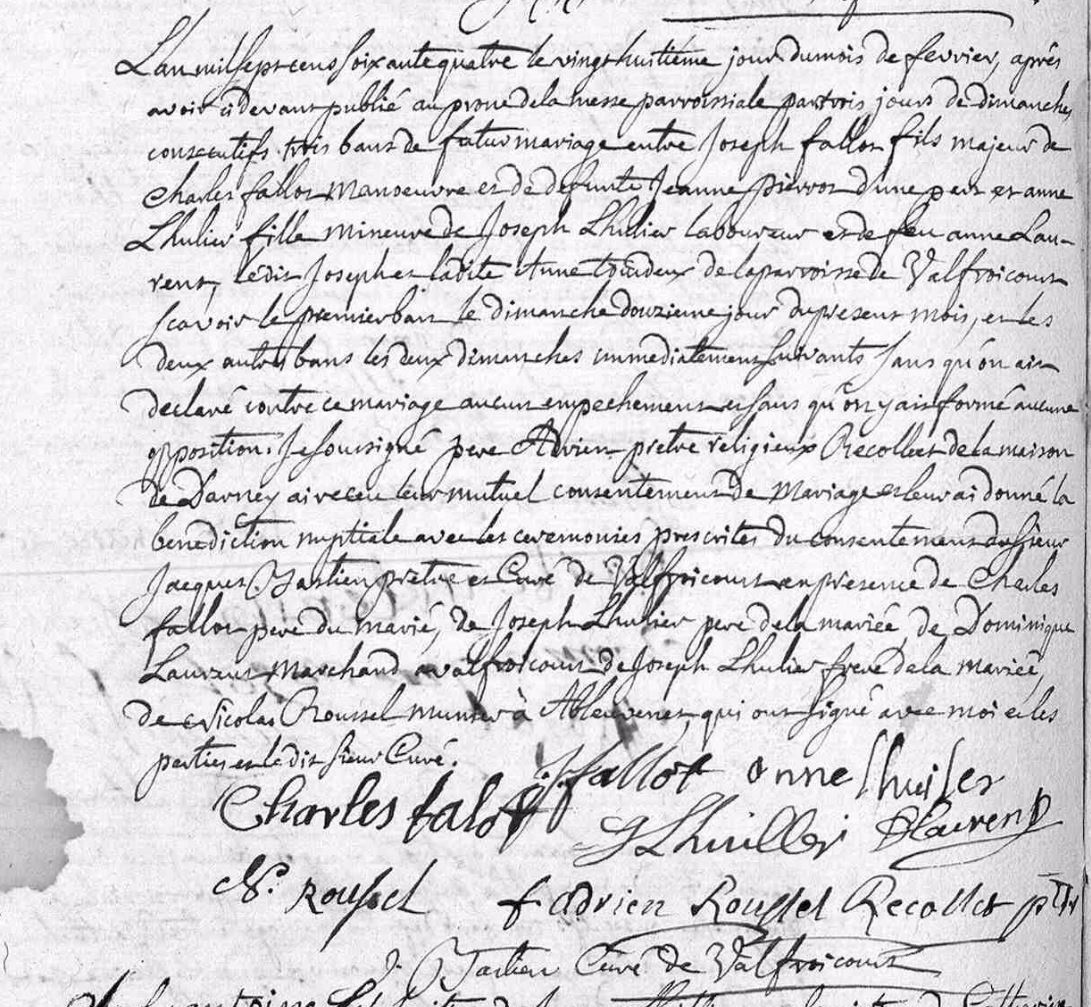 Lan mil sept cens soixante quatre le vingt huitiéme jour du mois de fevrier, aprés
avoir cidevant publié au prone dela messe parroissiale par trois jours de dimanches
consecutifs trois bans de futur mariage entre Joseph fallot fils majeur de
Charles fallot Manoeuvre et de defunte Jeanne Pierrot d'une part et anne
Lhulier fille mineure de Joseph Lhulier laboureur et de feu anne Lau-
rent, ledit Joseph et ladite Anne tous deux de la parroisse de Valfroicourt
scavoir le premier ban le dimanche douzieme jour du present mois, et les
deux autres bans les deux dimanches immediatement suivants sans qu'on ait
declaré contre ce mariage aucun empechement et sans qu'on y ait formé aucune
opposition. Je soussigné pere Adrien pretre religieux Recollect de la maison
de Darney ai receu leur mutuel consentement de Mariage et leur ai donné la
benediction nuptiale avec les ceremonies prescrites du consentement du sieur
Jacques Bastien pretre et Curé de Valfroicourt en presence de Charles
fallot pere du marié, de Joseph Lhulier pere dela mariée, de Dominique
Laurent Marchand a valfroicourt de Joseph Lhulier frere dela mariée,
de Nicolas Roussel à Ableuvenet qui ont signé avec moi et les
parties et ledit sieur Curé.
J. fallot anne lhuiler
Charles falot
J Lhuillier D Laurent
N. Roussel f adrien Roussel Recollect ptre
J. Bastien Curé de Valfroicourt